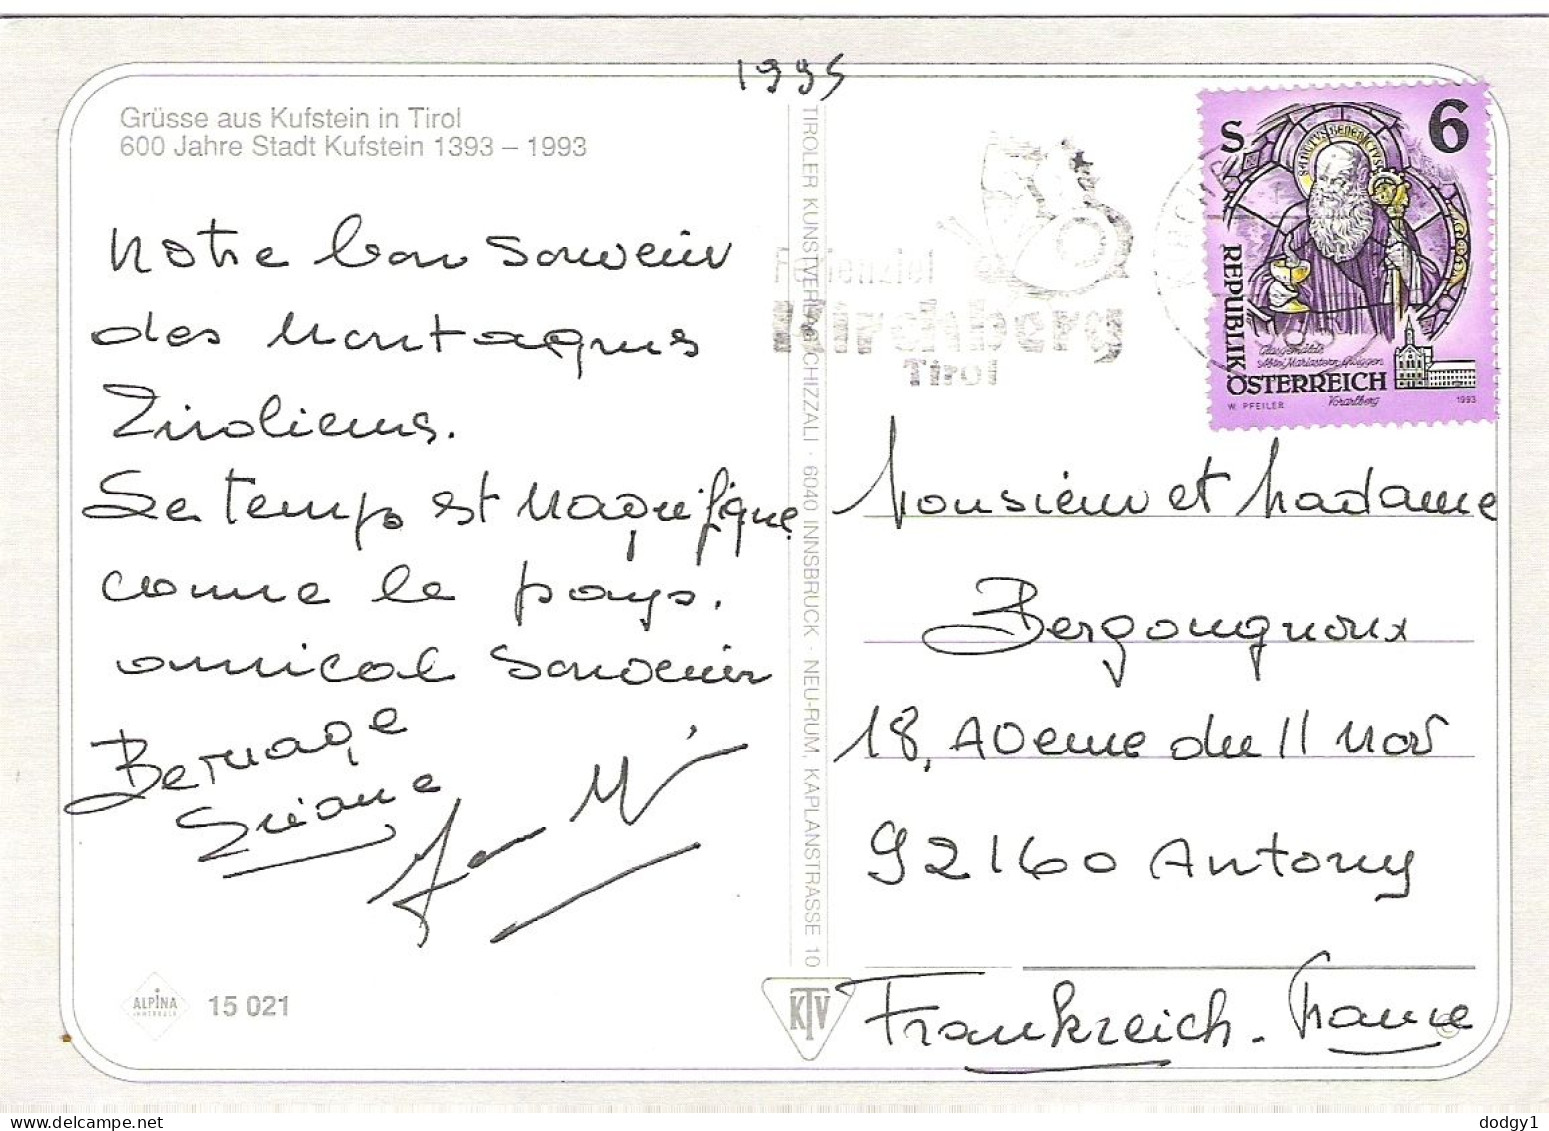 1995
Grüsse aus Kufstein in Tirol
600 Jahre Stadt Kufstein 1393 – 1993
Notre bon souvenir
des Montagnes
Tiroliennes.
Le temps est magnifique
comme le pays.
amical souvenir
Bernage
ALPINA
INNSBRUCK
15 021
TIROLER KUNSTVERLAG CHIZZALI · 6040 INNSBRUCK · NEU-RUM, KAPLANSTRASSE 10
KTV
Ferienziel
Kirchberg
Tirol
S 6
SANCTVS BENEDICTVS
REPUBLIK
ÖSTERREICH
Glasgemälde
Abtei Mariastern Gwiggen
Vorarlberg
W. PFEILER
1993
Monsieur et Madame
Bergougnoux
18, Avenue du 11 Nov
92160 Antony
Frankreich - France
©
dodgy1